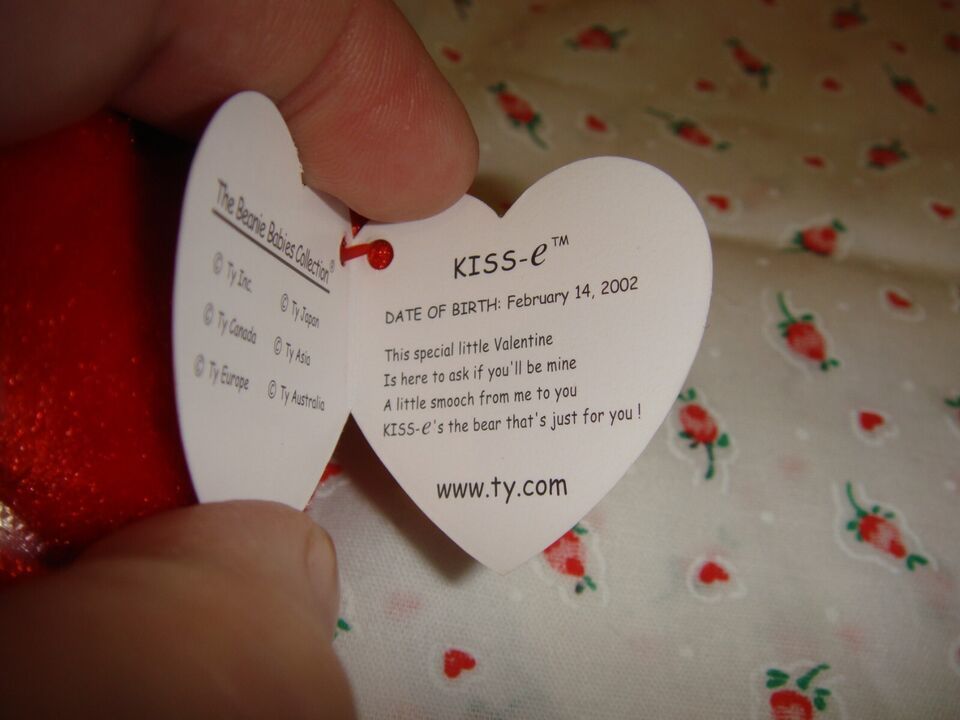 The Beanie Babies Collection®
© Ty Inc.
© Ty Canada
© Ty Europe
© Ty Japan
© Ty Asia
© Ty Australia
KISS-e™
DATE OF BIRTH: February 14, 2002
This special little Valentine
Is here to ask if you'll be mine
A little smooch from me to you
KISS-e's the bear that's just for you !
www.ty.com